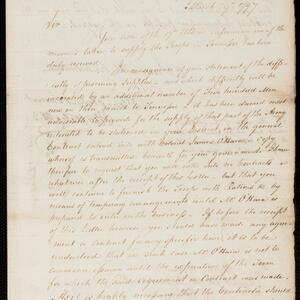 March 29th 1797
Sir
Your letter of the 19th Ultimo informing me of the
measures taken to supply the Troops in Tennessee has been
duly received.
In consequence of your statement of the diffi-
culty of procuring supplies - which difficulty will be
increased by an additional number of Five hundred Men
now on their march to Tennessee - it has been deemed most
adviseable to provide for the supply of that part of the Army
intended to be stationed in your District, in the general
Contract entered into with Colonel James O'Hara a copy
whereof is transmitted for your government. I have
therefore to request that you will enter into no Contracts
whatever after the receipt of this Letter - but that you
will continue to furnish the Troops with Rations &c by
means of temporary arrangements until Mr O'Hara is
prepared to enter on the business. If before the receipt
of this Letter however you should have made any agree-
ment or Contract for any specific time, it is to be
understood that in such case Mr O'Hara is not to
commence issues until the expiration of the Term
for which the said agreement or Contract was made.
As it is highly necessary that the Contractor should